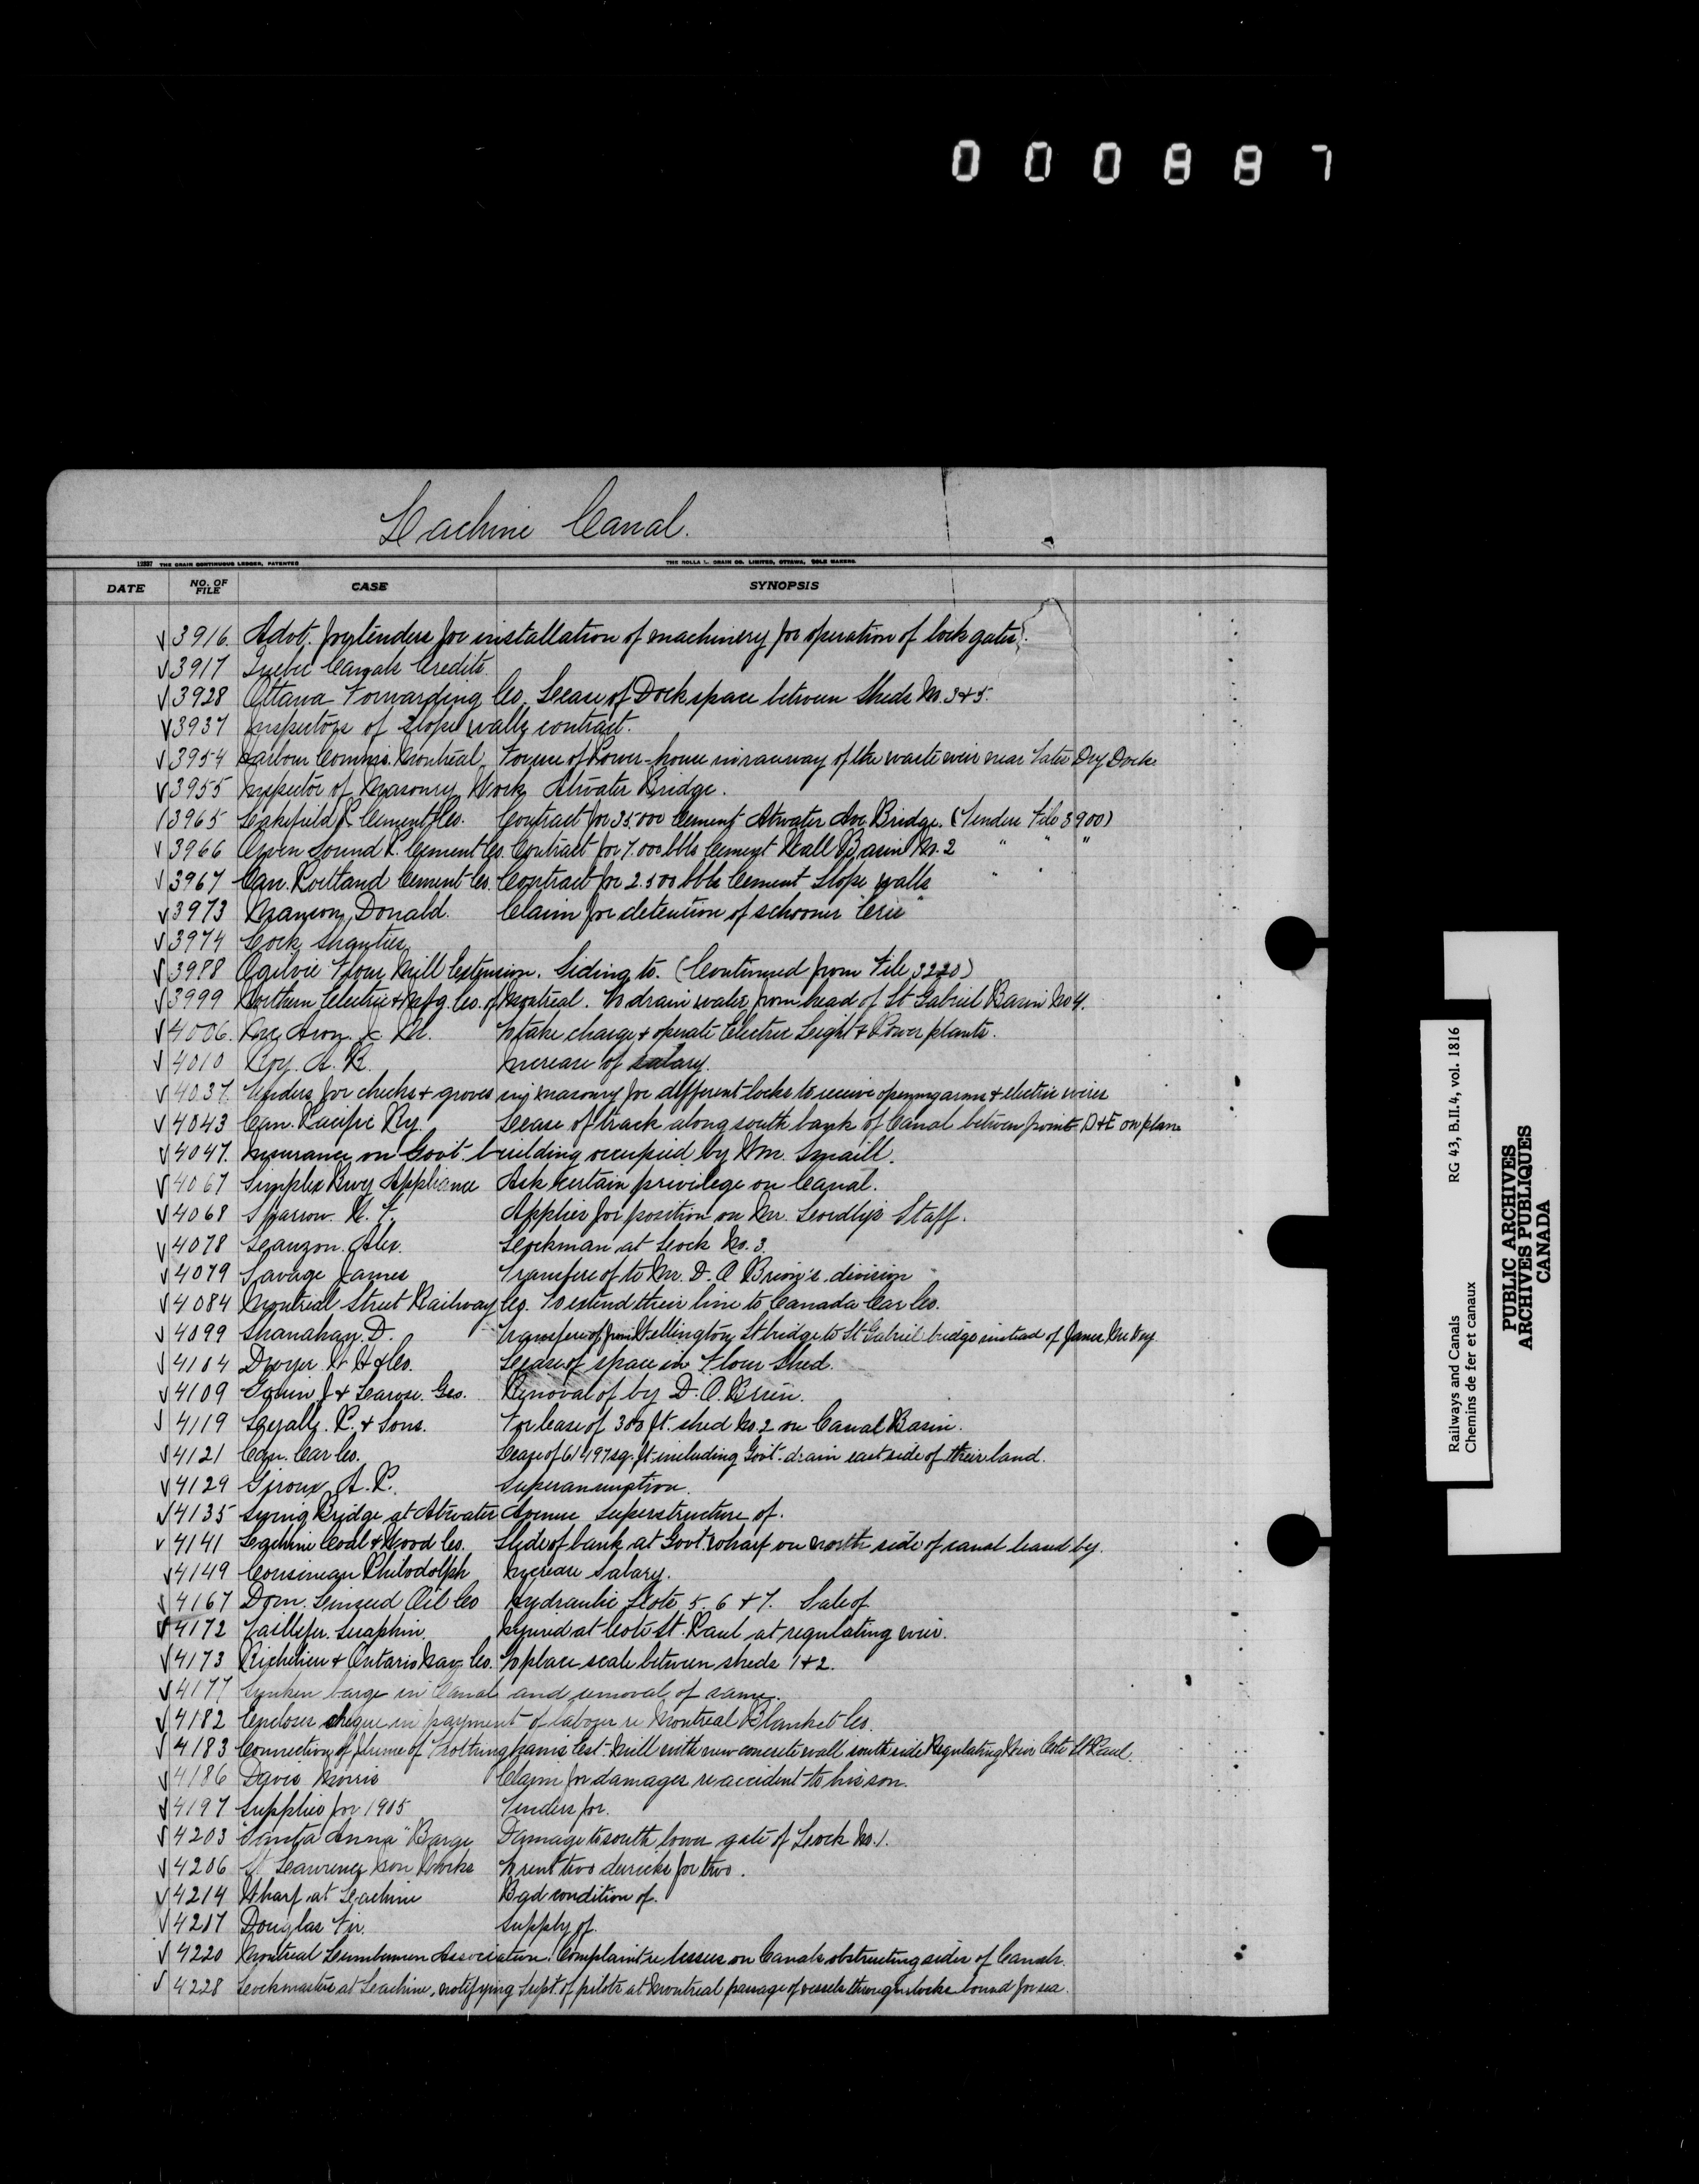 000887
Lachine Canal.
12337 THE CRAIN CONTINUOUS LEDGER, PATENTED THE ROLLA L. CRAIN CO. LIMITED, OTTAWA, SOLE MAKERS
DATE NO. OF FILE CASE SYNOPSIS
√ 3916. Advt. for tenders for installation of machinery for operation of lock gates.
√ 3917 Quebec Canals Credits.
√ 3928 Ottawa Forwarding Co. Lease of Dock space between Sheds No. 3 & 5.
√ 3937 Inspectors of slope walls contract.
√ 3954 Harbour Commrs. Montreal, For use of Power-house in raceway of the waste weir near Tates Dry Dock
√ 3955 Inspector of Masonry Work Atwater Bridge.
√ 3965 Lakefield P. Cement Co. Contract for 35.000 Cement Atwater Ave Bridge. (Tender File 3900)
√ 3966 Owen Sound P. Cement Co. Contract for 7.000 bbls Cement Wall Basin No. 2 " " "
√ 3967 Can. Portland Cement Co. Contract for 2.500 bbls Cement Slope walls " "
√ 3973 Manson, Donald. Claim for detention of schooner "Erie"
√ 3974 Lock Shanties
√ 3988 Ogilvie Flour Mill Extension. Siding to. (Continued from File 3220)
√ 3999 Northern Electric & Mfg. Co. of Montreal. To drain water from head of St Gabriel Basin No 4.
√ 4006. To take charge & operate Electric Light & Power plants.
√ 4010 Roy. A. R. Increase of salary.
√ 4037. Tenders for checks & groves in masonry for different locks to receive opening arms & electric wires
√ 4043 Can. Pacific Ry. Lease of track along south bank of Canal between points D & E on plan
√ 4047. Insurance on Govt. building occupied by Wm. Smaill.
√ 4067 Simplex Appliance Ask certain privilege on Canal.
√ 4068 Sparrow. Applies for position on Mr. Staff.
√ 4078 Lauzon. Alex. Lockman at Lock No. 3
√ 4079 Savage James Transfere of to Mr. D. O Brien's division
√ 4084 Montreal Street Railway Co. To extend their line to Canada Car Co.
√ 4099 Shanahan. D. Transfere of from Wellington St bridge to St Gabriel bridge instead of James
√ 4104 Dwyer. W. H & Co. Lease of space in Flour Shed.
√ 4109 Gouin J & Larose. Geo. Removal of by D. O. Brien.
√ 4119 P. & Sons. For lease of 300 ft. shed No. 2 on Canal Basin.
√ 4121 Can. Car Co. Lease of 61497 sq. ft. including Govt. drain east side of their land.
√ 4129 Giroux A. P. Superannuation.
√ 4135 Swing Bridge at Atwater Avenue Superstructure of.
√ 4141 Lachine Coal & Wood Co. Slide of bank at Govt. wharf on north side of canal leased by.
√ 4149 Cousineau Philodolph Increase salary.
√ 4167 Dom. Linseed Oil Co Hydraulic Lots 5. 6 & 7. Sale of
√ 4172 Taillefer. Seraphin. Injured at Cote St. Paul at regulating weir.
√ 4173 Richelieu & Ontario Nav. Co. To place scale between sheds 1 & 2.
√ 4177 Sunken barge in Canal and removal of same.
√ 4182 Encloses cheque in payment of labor re Montreal Blanket Co.
√ 4183 Connection of flume of Frothinghams Est. Mill with new concrete wall south side Regulating Weir Cote St Paul
√ 4186 Davis Morris Claim for damages re accident to his son.
√ 4197 Supplies for 1905 Tenders for.
√ 4203 "Santa Anna" Barge Damage to south lower gate of Lock No. 1.
√ 4206 St Lawrence Iron Works To rent two derricks for two.
√ 4214 Wharf at Lachine Bad condition of.
√ 4217 Douglas Fir. Supply of.
√ 4220 Montreal Lumbermen Association. Complaint re lessees on Canals obstructing sides of Canals.
√ 4228 Lockmasters at Lachine, notifying Supt. of pilots at Montreal passage of vessels through locks bound for sea.
Railways and Canals RG 43, B.II.4, vol. 1816
Chemins de fer et canaux
PUBLIC ARCHIVES
ARCHIVES PUBLIQUES
CANADA